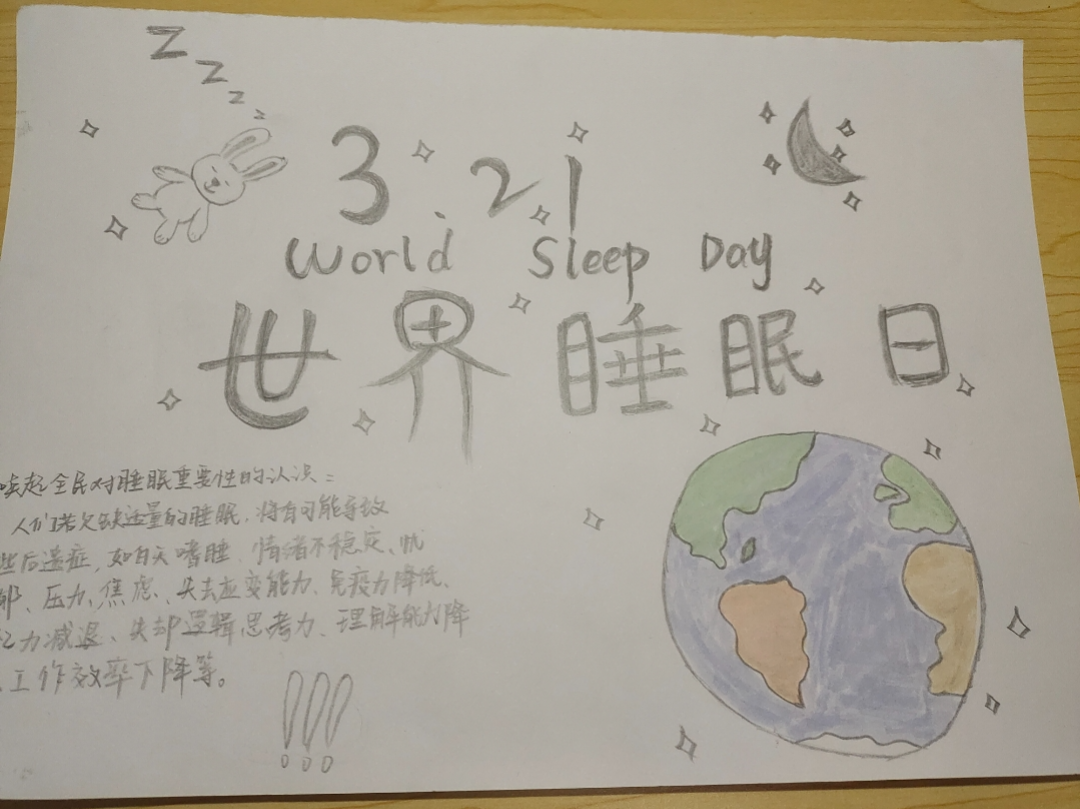 Z
Z
Z
Z
3.21
World Sleep Day
世界睡眠日
唤起全民对睡眠重要性的认识:
人们若欠缺适量的睡眠,将有可能导致
些后遗症,如白天嗜睡、情绪不稳定、忧
郁、压力、焦虑、失去应变能力、免疫力降低、
忆力减退、失却逻辑思考力、理解能力降
、工作效率下降等。
!!!